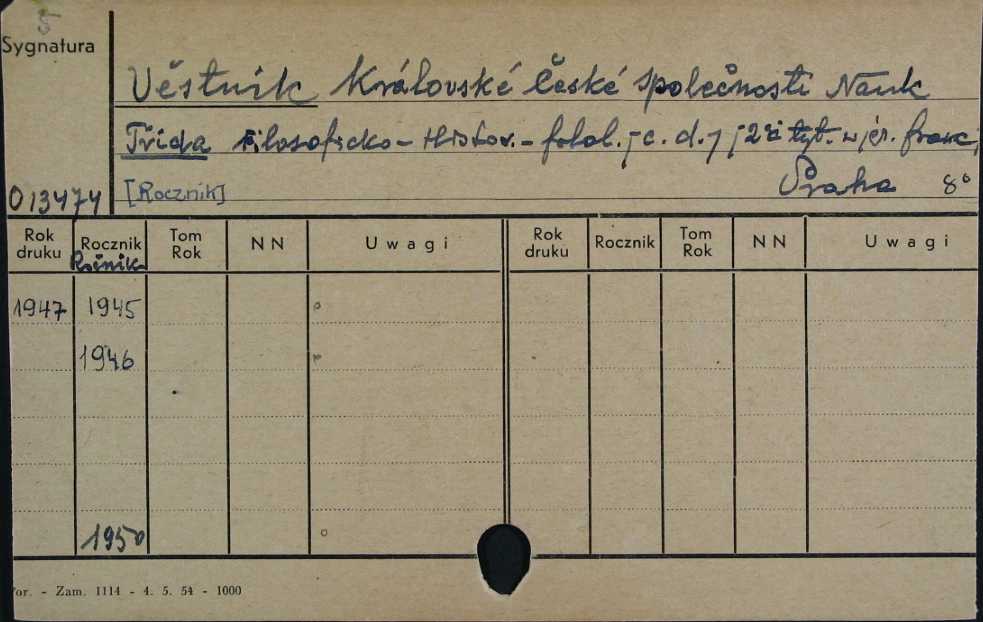 S
Sygnatura
Věstník Královské České Společnosti Nauk
Třída Filosoficko-Histor.-filol. /c. d./ /2 i tyt. w jęz. franc./
013474 [Rocznik] Praha 8°
Rok druku Rocznik Ročnik Tom Rok NN Uwagi Rok druku Rocznik Tom Rok NN Uwagi
1947 1945 o
1946
1950 o
or. - Zam. 1114 - 4. 5. 54 - 1000